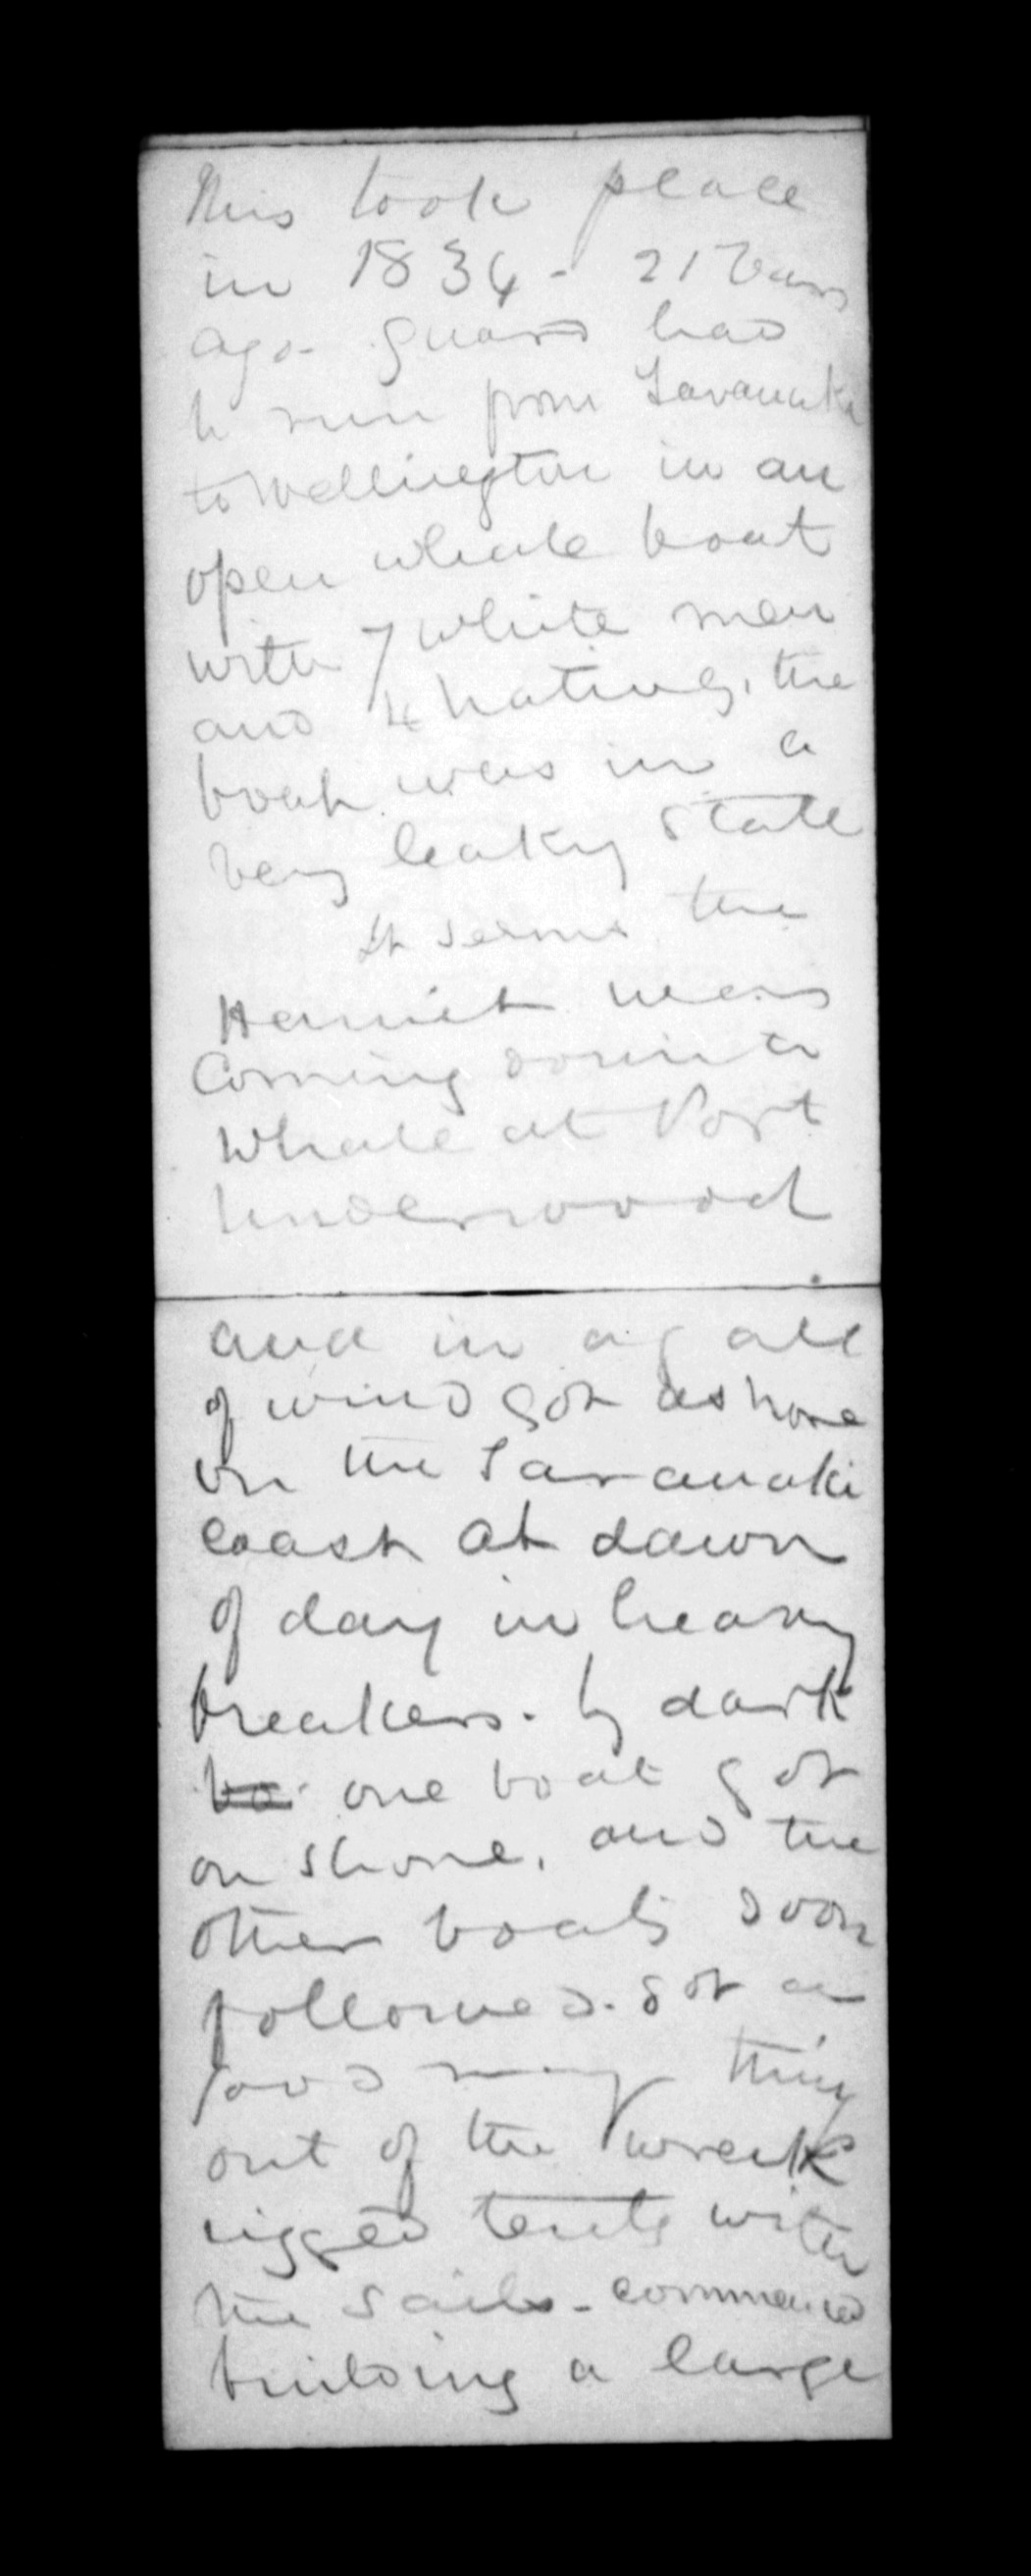 This took place
in 1834 - 21 Years
ago. Guard had
to run from Taranaki
to Wellington in an
open whale boat
with 7 white men
and 4 natives, the
boat was in a
very leaky state
It seems the
Harriet was
coming down to
whale at Port
Underwood
and in a gale
of wind got ashore
on the Taranaki
coast at dawn
of day in heavy
breakers. by dark
bo one boat got
on shore, and the
other boats soon
followed. Got a
good many thing
out of the wreck
rigged tents with
the sails - commenced
building a large